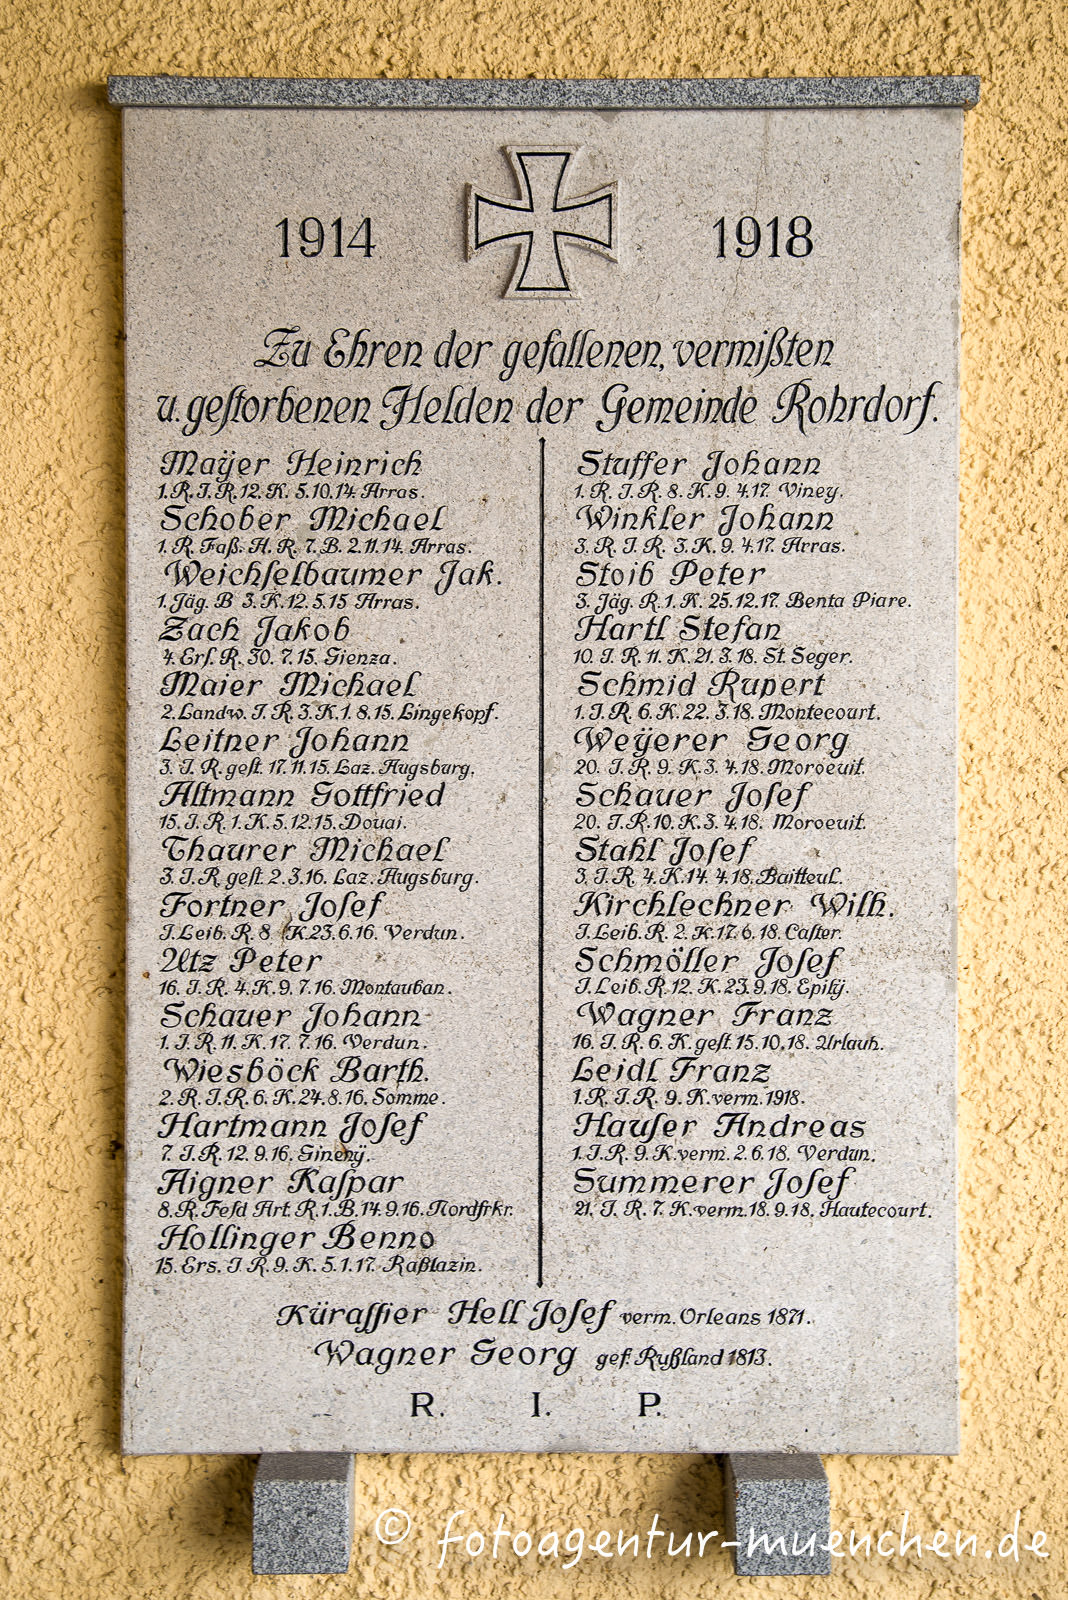 1914 1918
Zu Ehren der gefallenen, vermißten
u. gestorbenen Helden der Gemeinde Rohrdorf.
Mayer Heinrich
1. R. I. R. 12. K. 5.10.14. Arras.
Schober Michael
1. R. Faß. A. R. 7. B. 2.11.14. Arras.
Weichselbaumer Jak.
1. Jäg. B 3. K. 12.5.15 Arras.
Zach Jakob
4. Ers. R. 30. 7.15. Gienza.
Maier Michael
2. Landw. I. R. 3. K. 1. 8.15. Lingekopf.
Leitner Johann
3. I. R. gest. 17.11.15. Laz. Augsburg.
Altmann Gottfried
15. I. R. 1. K. 5.12.15. Douai.
Thaurer Michael
3. I. R. gest. 2.3.16. Laz. Augsburg.
Fortner Josef
I. Leib. R. 8. K. 23.6.16. Verdun.
Utz Peter
16. I. R. 4. K. 9. 7.16. Montauban.
Schauer Johann
1. I. R. 11. K. 17. 7.16. Verdun.
Wiesböck Barth.
2. R. I. R. 6. K. 24.8.16. Somme.
Hartmann Josef
7. I. R. 12. 9.16. Ginchy.
Aigner Kaspar
8. R. Feld Art. R. 1. B. 14. 9.16. Nordfrkr.
Hollinger Benno
15. Ers. I. R. 9. K. 5.1.17. Raßlazin.
Stuffer Johann
1. R. I. R. 8. K. 9. 4.17. Viney.
Winkler Johann
3. R. I. R. 3. K. 9. 4.17. Arras.
Stoib Peter
3. Jäg. R. 1. K. 25.12.17. Benta Piare.
Hartl Stefan
10. I. R. 11. K. 21. 3.18. St. Seger.
Schmid Rupert
1. I. R. 6. K. 22. 3.18. Montecourt.
Weyerer Georg
20. I. R. 9. K. 3. 4.18. Moroeuit.
Schauer Josef
20. I. R. 10. K. 3. 4.18. Moroeuit.
Stahl Josef
3. I. R. 4. K. 14. 4.18. Baitteul.
Kirchlechner Wilh.
I. Leib. R. 2. K. 17. 6. 18. Caster.
Schmöller Josef
I. Leib. R. 12. K. 23. 9.18. Epihy.
Wagner Franz
16. I. R. 6. K. gest. 15.10.18. Urlaub.
Leidl Franz
1. R. I. R. 9. K. verm. 1918.
Hauser Andreas
1. I. R. 9. K. verm. 2.6.18. Verdun.
Summerer Josef
21. I. R. 7. K. verm. 18. 9.18. Hautecourt.
Kürassier Hell Josef verm. Orleans 1871.
Wagner Georg gef. Rußland 1813.
R. I. P.
© fotoagentur-muenchen.de